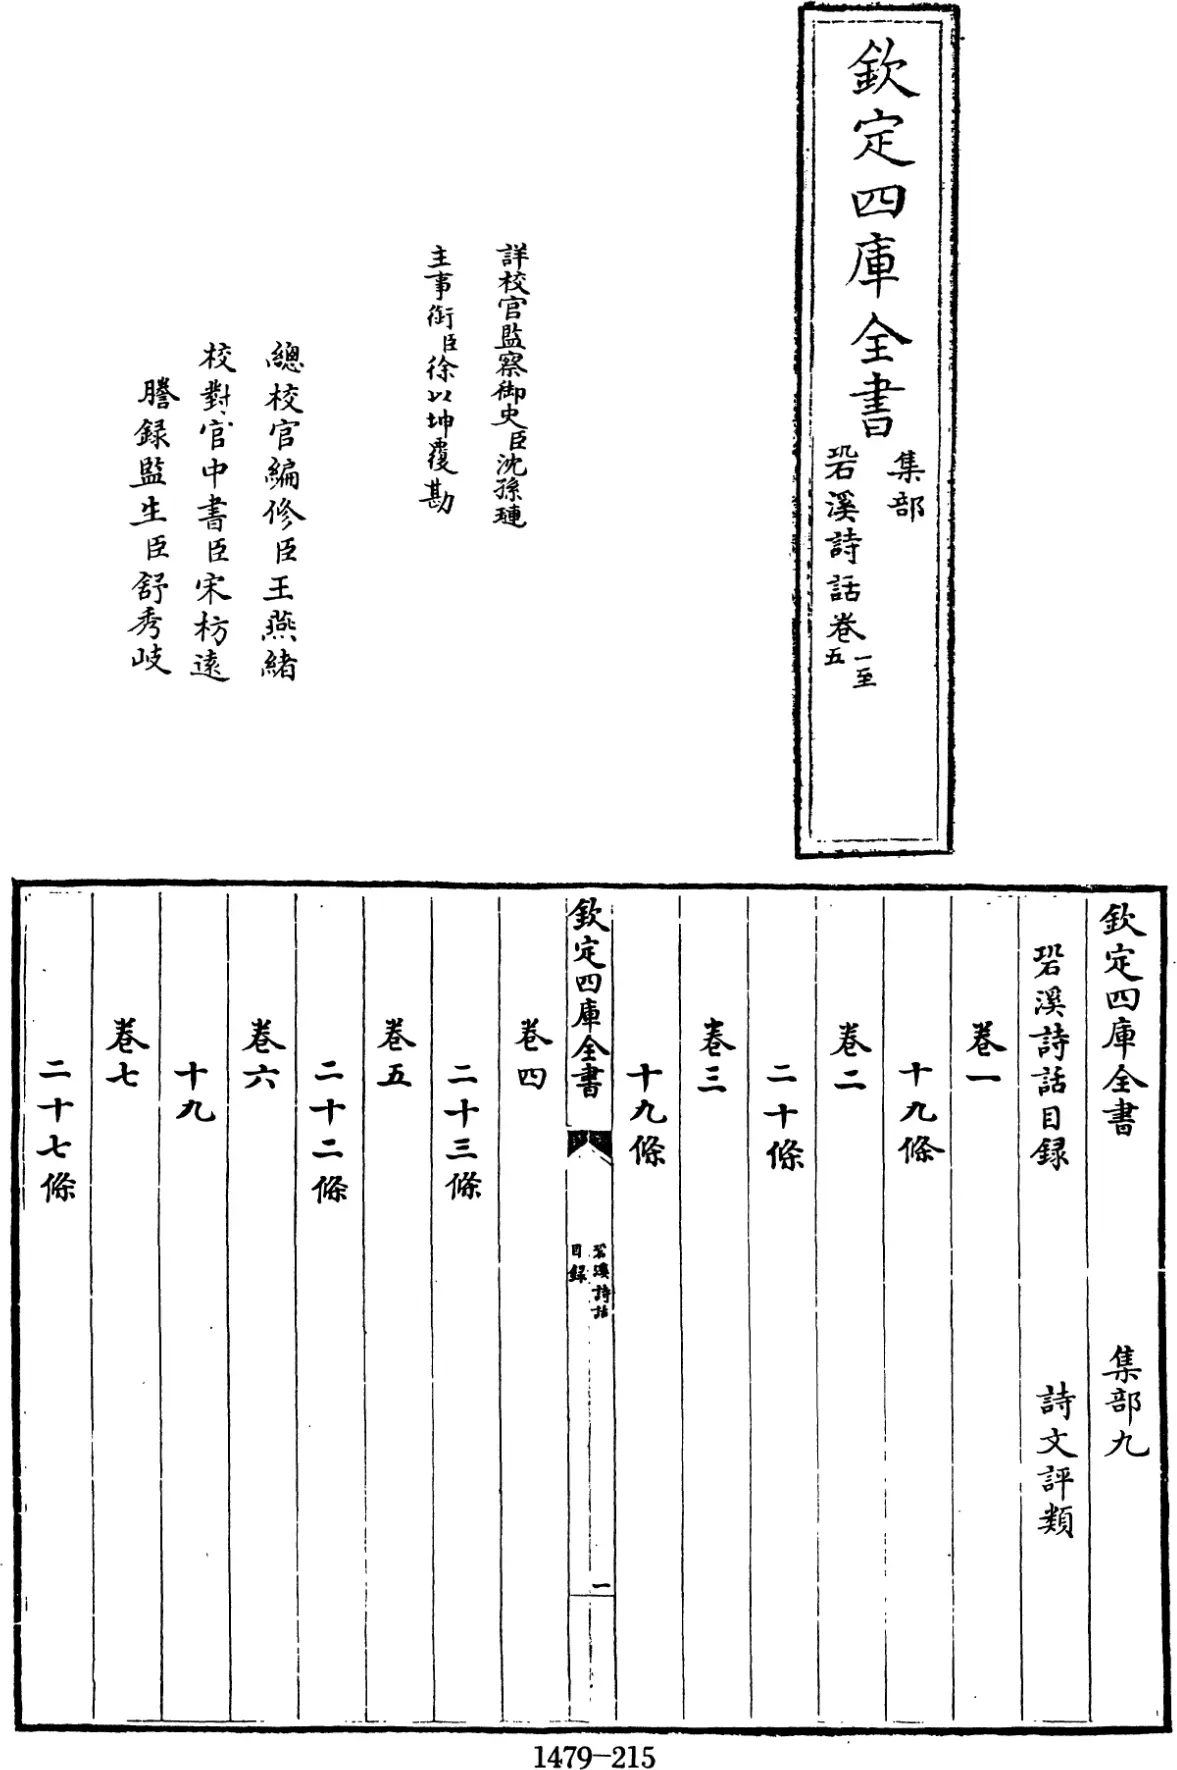 欽定四庫全書
集部
䂬溪詩話卷一至五
詳校官監察御史臣沈孫璉
主事銜臣徐以坤覆勘
總校官編修臣王燕緒
校對官中書臣宋枋遠
謄録監生臣舒秀岐
欽定四庫全書 集部九
䂬溪詩話目録 詩文評類
卷一
十九條
卷二
二十條
卷三
十九條
欽定四庫全書
䂬溪詩話
目録
一
卷四
二十三條
卷五
二十二條
卷六
十九
卷七
二十七條
1479-215